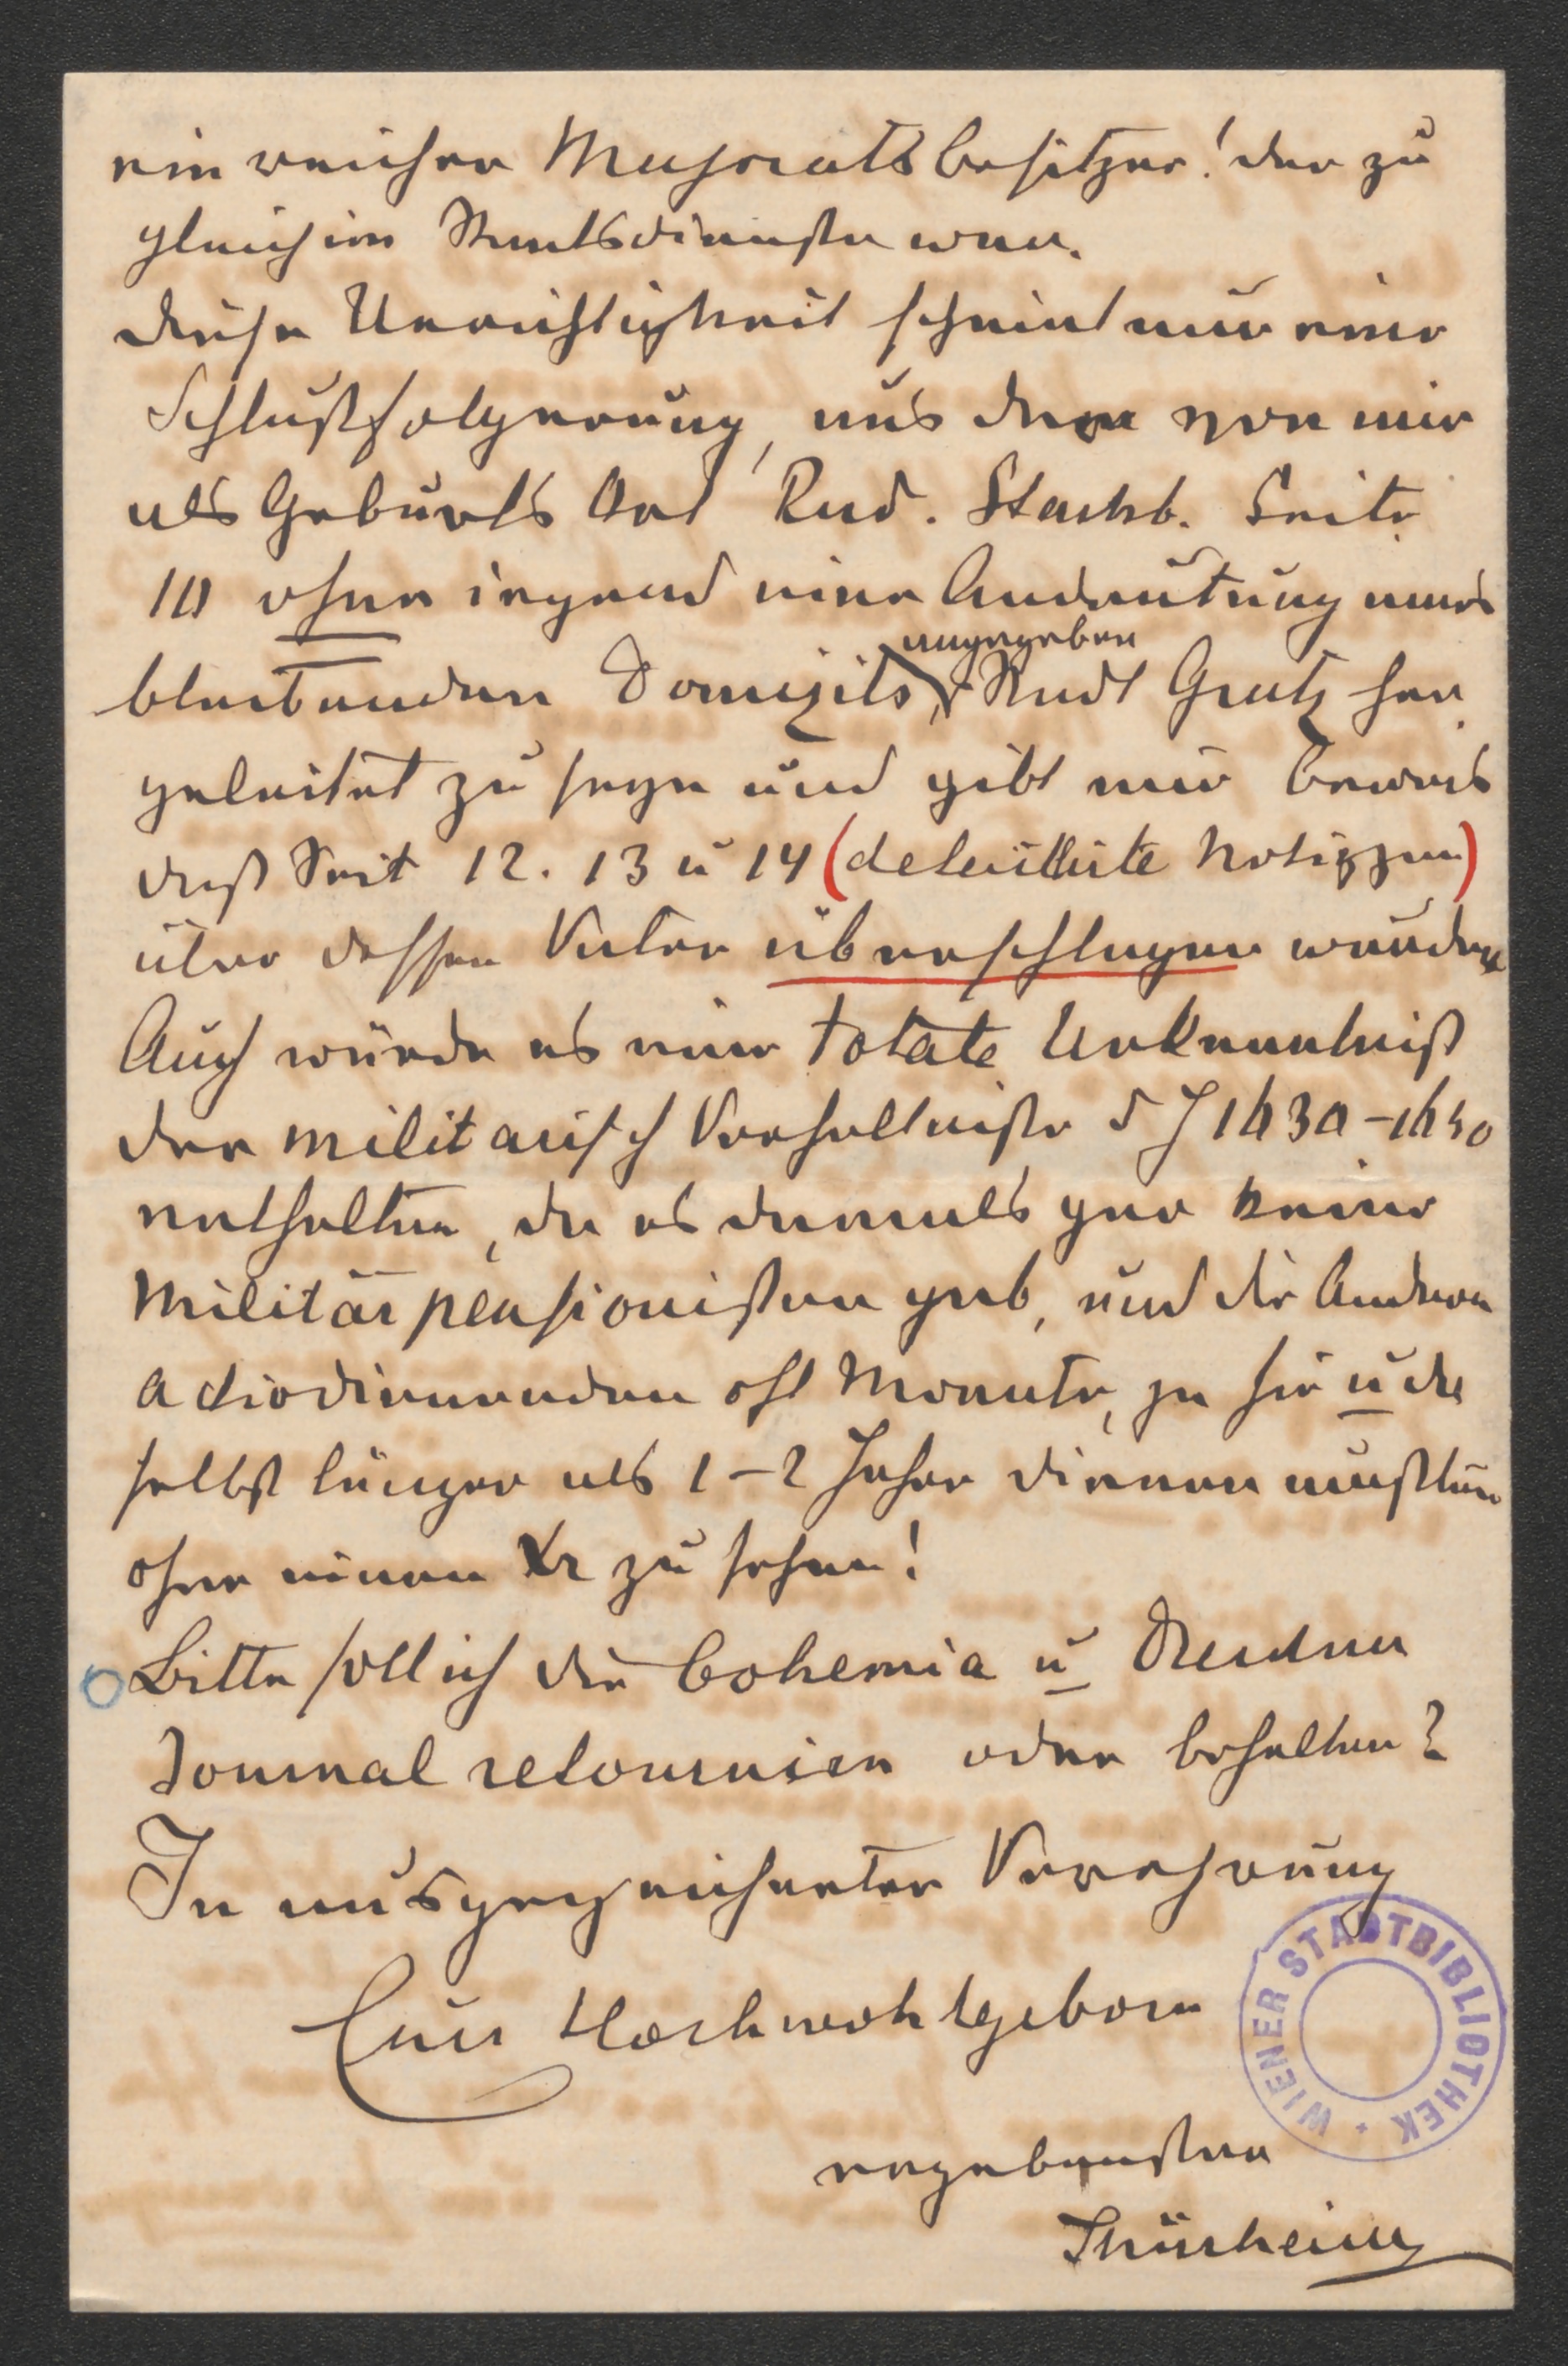 ein reicher Majoratsbesitzer! der zu
gleich im Staatsdienste war.
Diese Unrichtigkeit scheint nur eine
Schlußfolgerung, aus dem von mir
als Geburts Ort Rud. Starhb. Seite
10 ohne irgend eine Andeutung eines
angegeben
bleibenden Domizils, Stadt Gratz her
geleitet zu seyn und gibt mir Beweis
daß Seit 12. 13 u 14 (detaillirte Notizzen)
über dessen Vater überschlagen wurden
Auch würde es eine totale Unkenntniß
der militärisch Verhältniße d J 1830–1850
enthalten, da es damals gar keine
Militärpensionisten gab, und die Anderen
activdienenden oft Monate, ja sie u die
selbst länger als 1–2 Jahre dienen mußten
ohne einen Xr zu sehen!
Bitte soll ich die Bohemia u Dresdner
Journal retourniren oder behalten?
In ausgezeichneter Verehrung
Euer Hochwohlgeborn
ergebenster
Thürheim
WIENER STADTBIBLIOTHEK